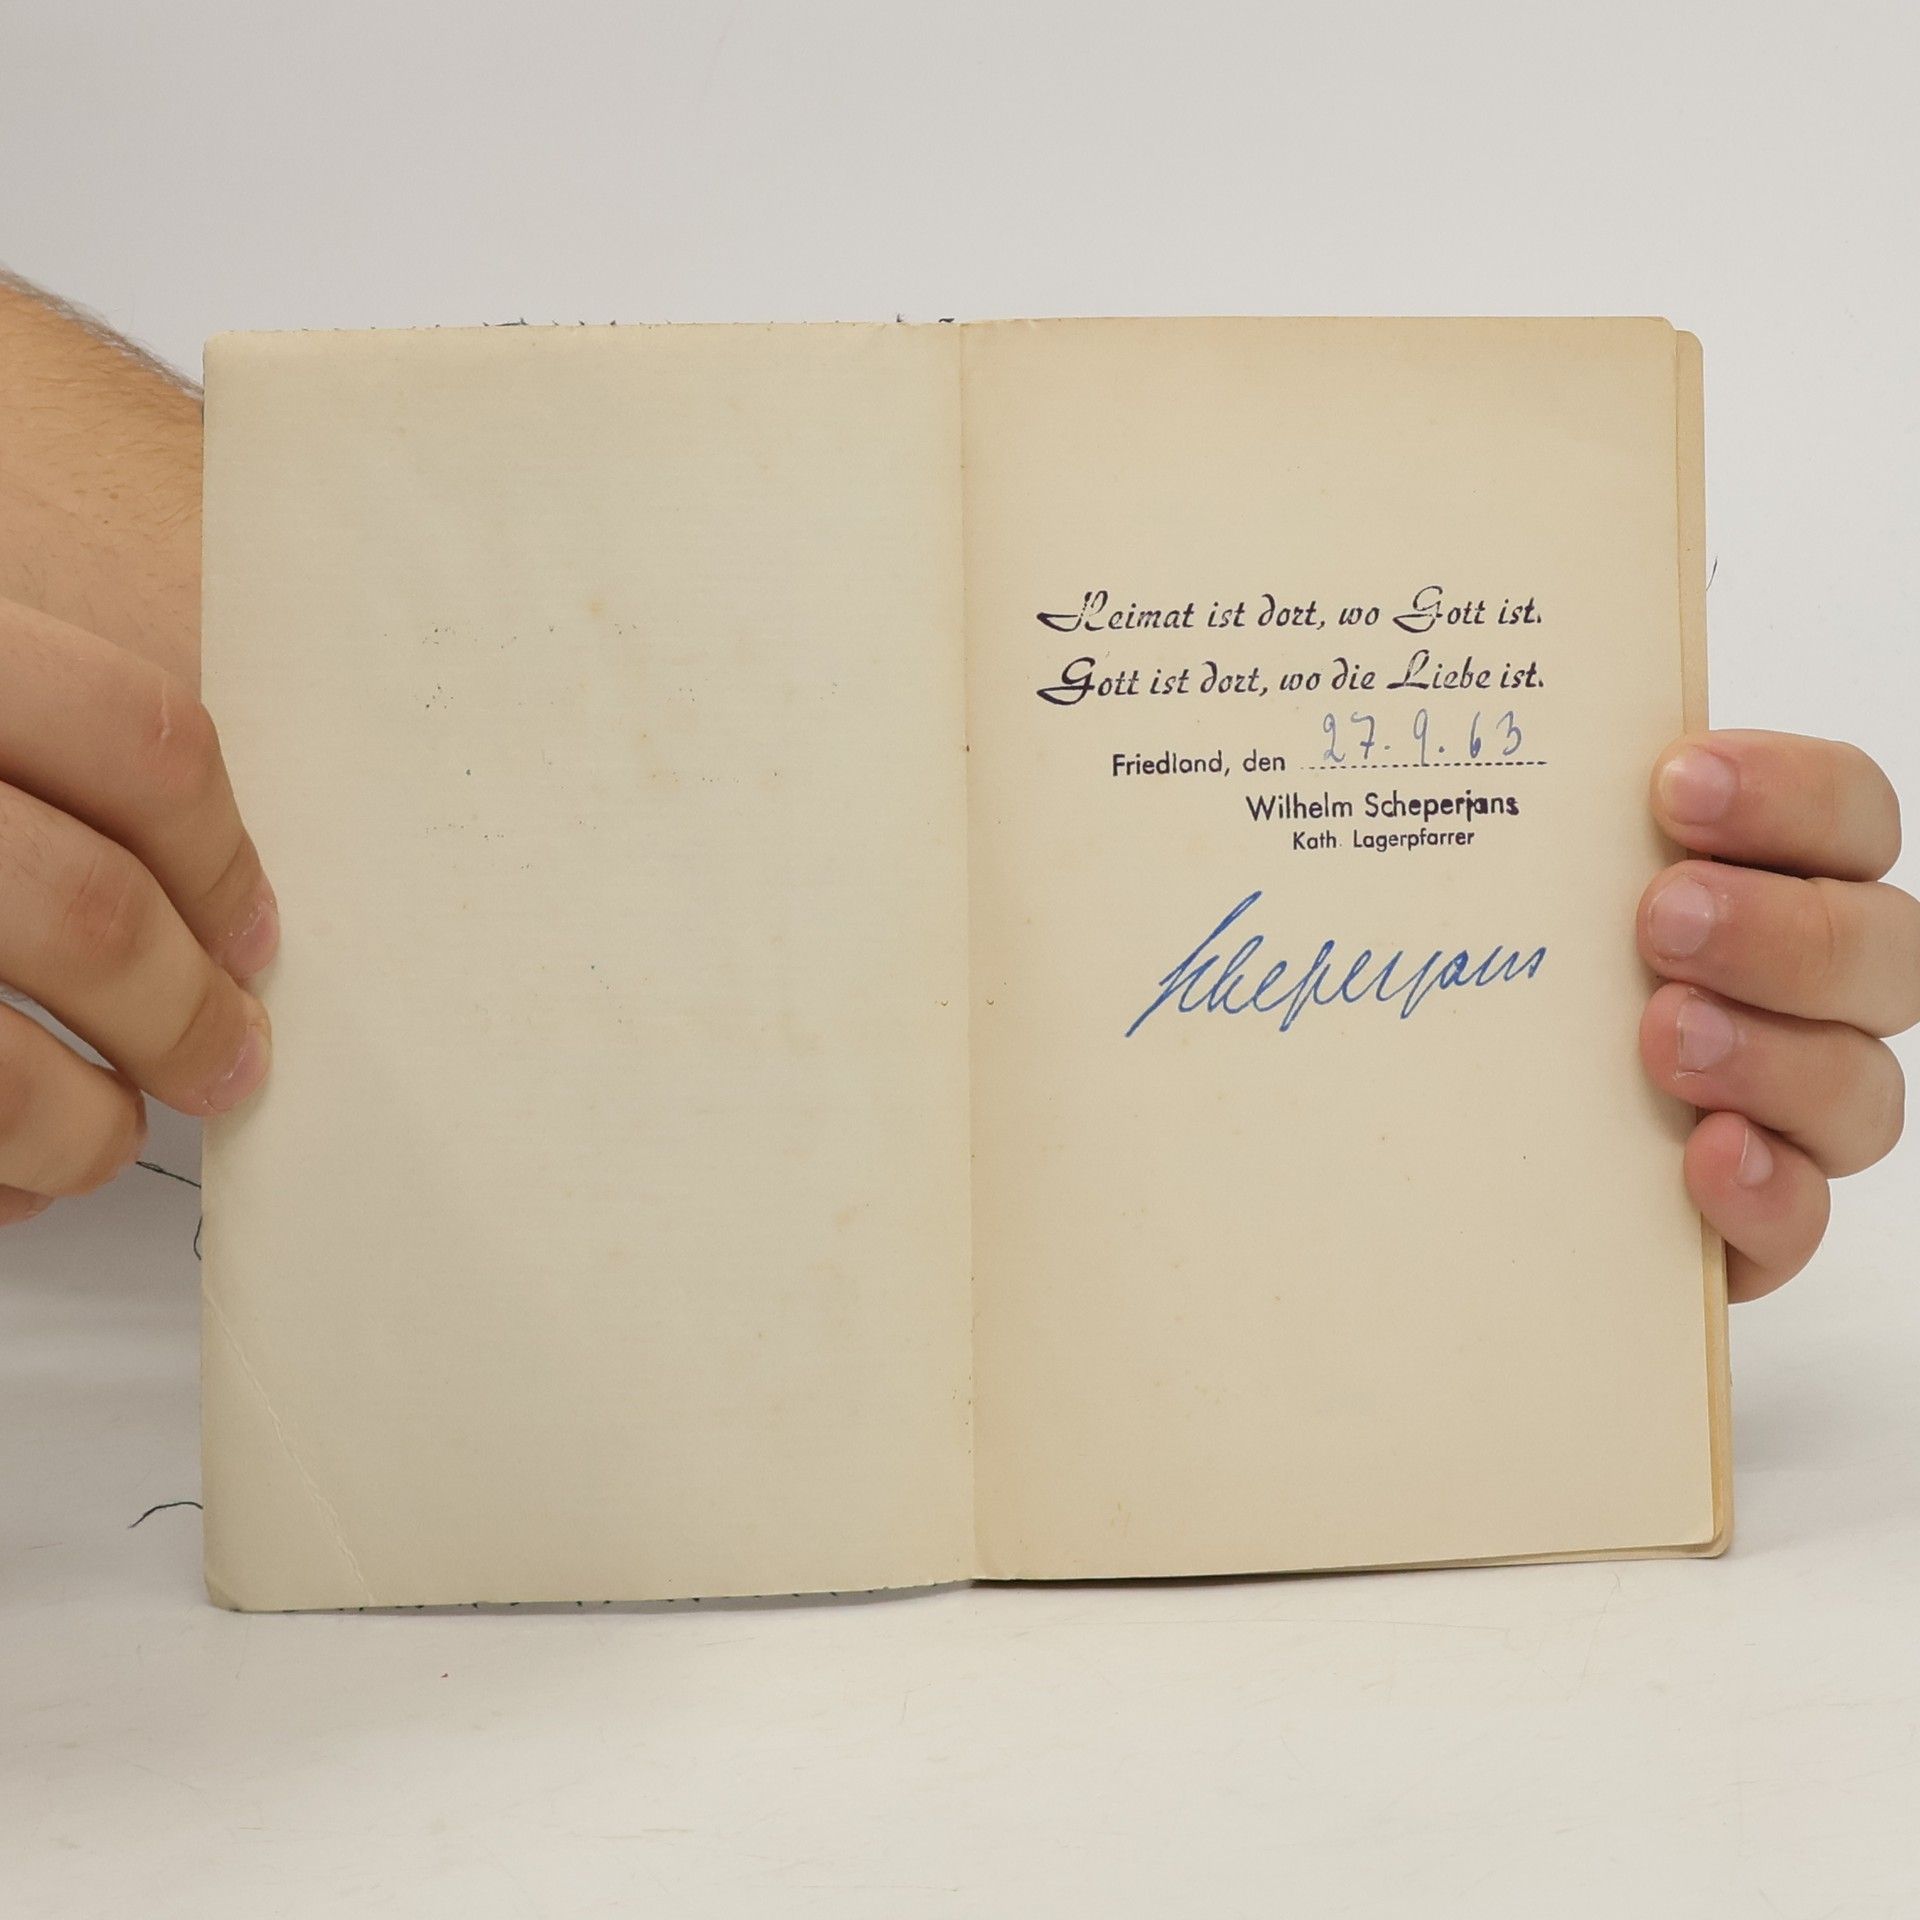 Heimat ist dort, wo Gott ist.
Gott ist dort, wo die Liebe ist.
Friedland, den 27. 9. 63
Wilhelm Scheperjans
Kath. Lagerpfarrer
Scheperjans